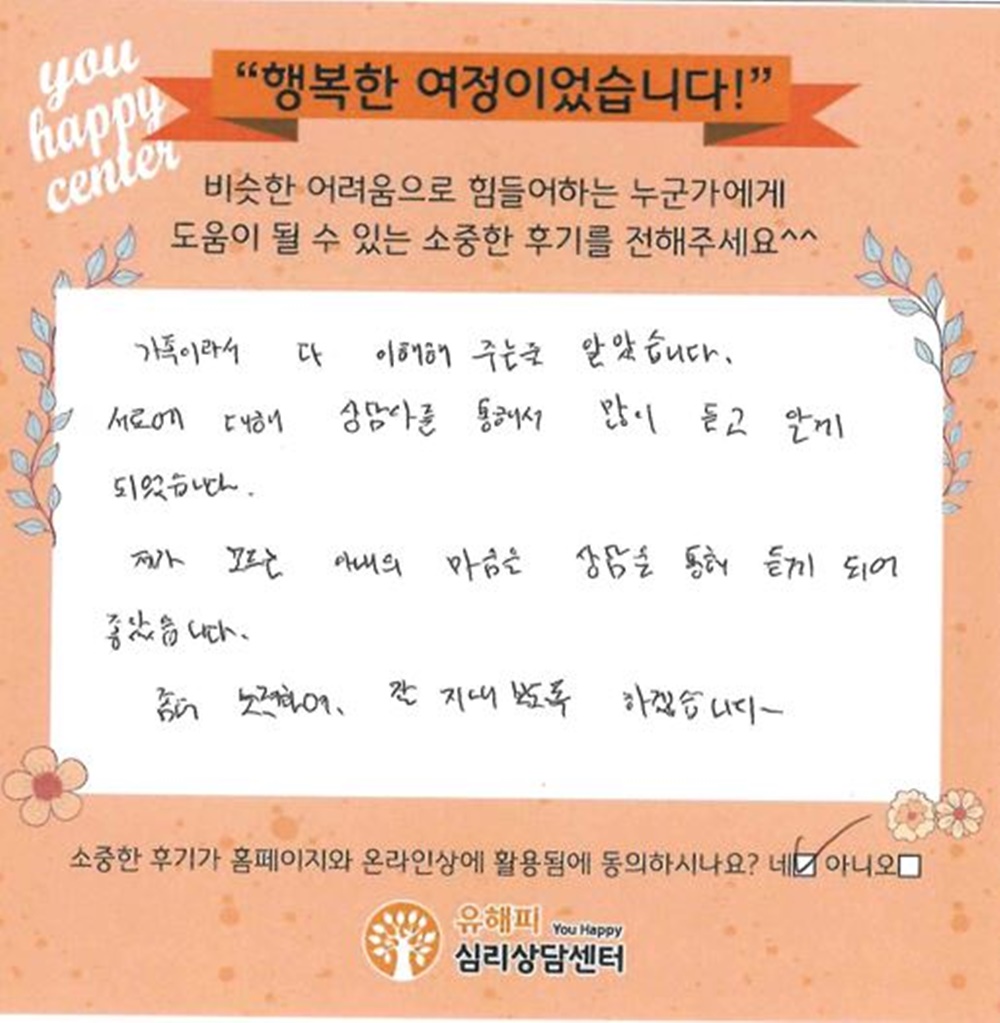 you
happy
center
“행복한 여정이었습니다!”
비슷한 어려움으로 힘들어하는 누군가에게
도움이 될 수 있는 소중한 후기를 전해주세요^^
가족이라서 다 이해해 주는줄 알았습니다.
서로에 대해 상담사를 통해서 많이 듣고 알게
되었습니다.
제가 모르는 아내의 마음을 상담을 통해 듣게 되어
좋았습니다.
좀더 노력하여. 잘 지내보도록 하겠습니다~
소중한 후기가 홈페이지와 온라인상에 활용됨에 동의하시나요? 네☑ 아니오☐
유해피 You Happy
심리상담센터